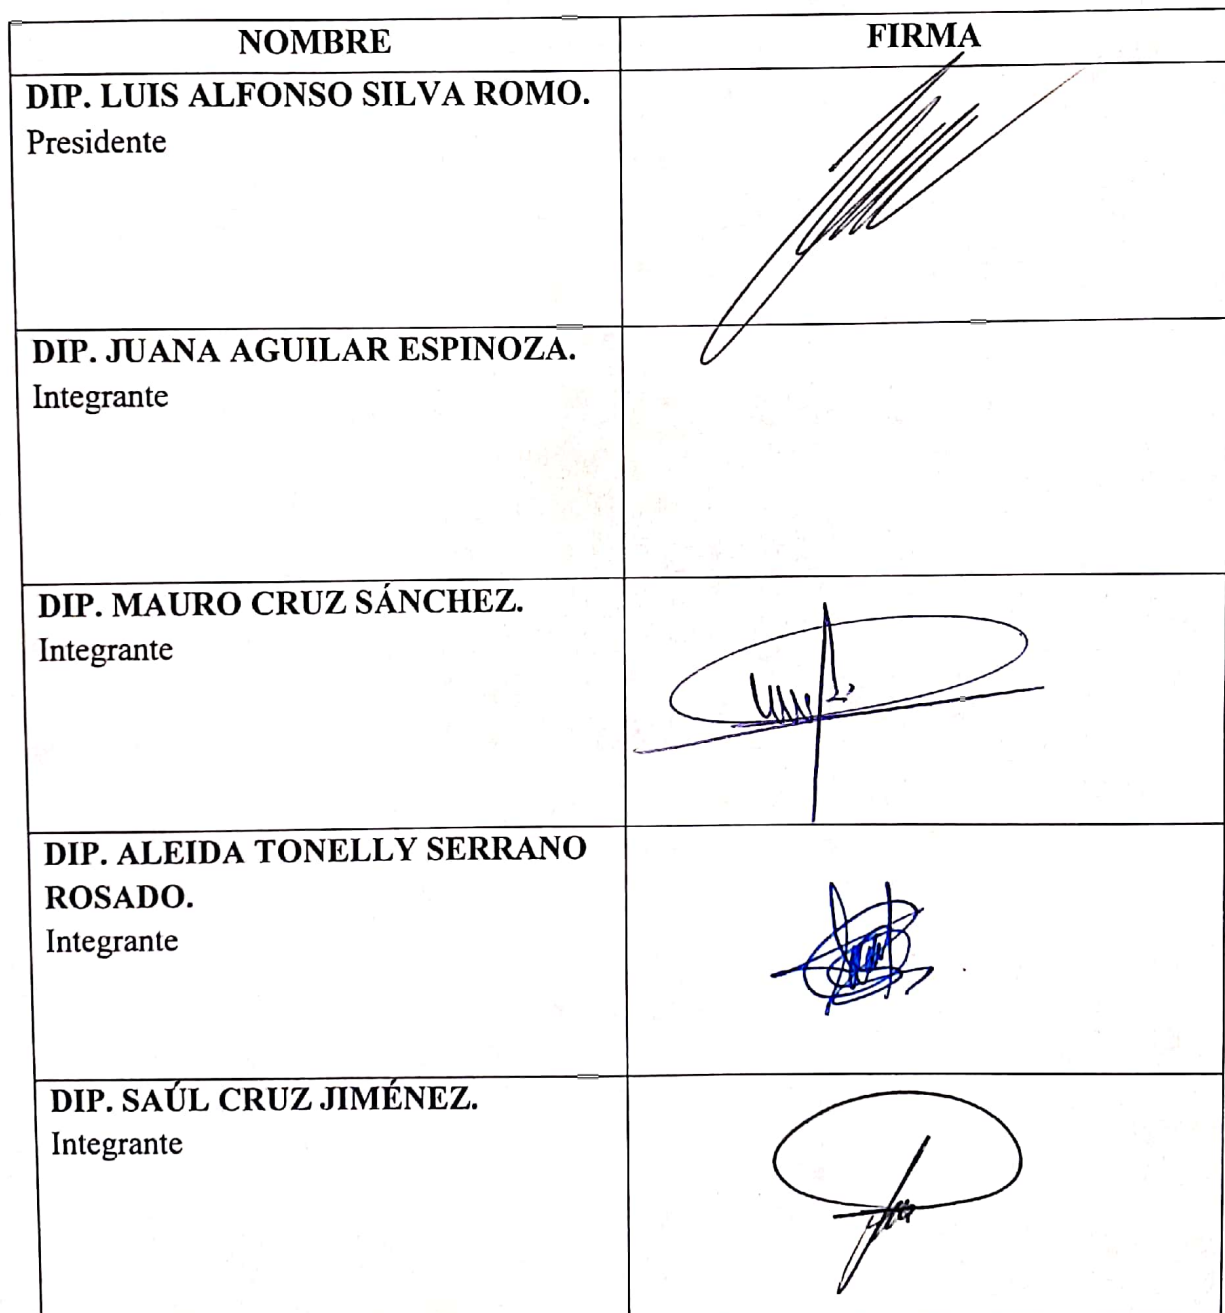 NOMBRE
FIRMA
DIP. LUIS ALFONSO SILVA ROMO.
Presidente
DIP. JUANA AGUILAR ESPINOZA.
Integrante
DIP. MAURO CRUZ SÁNCHEZ.
Integrante
DIP. ALEIDA TONELLY SERRANO
ROSADO.
Integrante
DIP. SAÚL CRUZ JIMÉNEZ.
Integrante